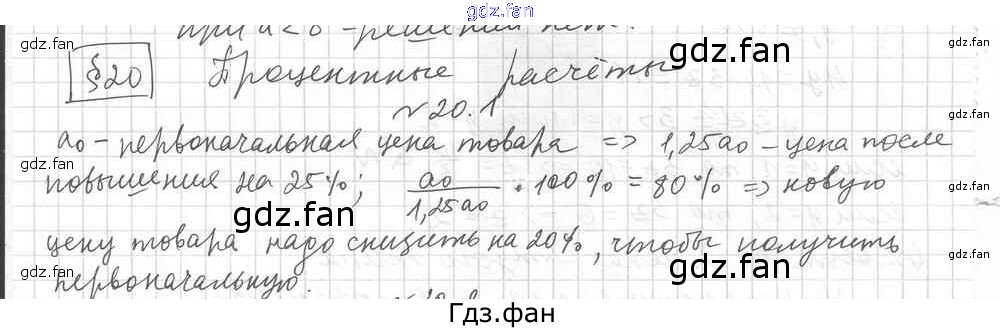 gdz.fan
при a<0 - решений нет.
gdz.fan gdz.fan
§20 Процентные расчёты
№20.1
gdz.fan gdz.fan
a₀ - первоначальная цена товара => 1,25a₀ - цена после
повышения на 25%; a₀/1,25a₀ · 100% = 80% => новую
gdz.fan gdz.fan
цену товара надо снизить на 20%, чтобы получить
gdz.fan gdz.fan
первоначальную.
Гдз.фан